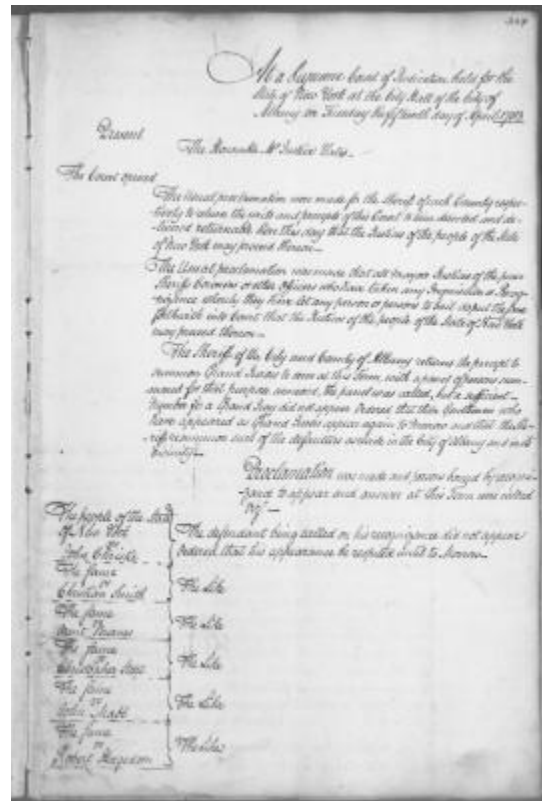 At a Supreme Court of Judicature held for the
State of New York at the City Hall of the City of
Albany on Tuesday the fifteenth day of April 1783
Present
The Honorable Mr Justice Yates
The Court opened
The Usual proclamation were made for the Sheriff of each County respec-
tively to return the writs and precepts of this Court to him directed and de-
livered returnable here this day that the Justices of the people of the State
of New York may proceed thereon
The Usual proclamation was made that all mayors Justices of the peace
Sheriffs Coroners or other officers who have taken any Inquisition or Recog-
nizance whereby they have let any person or persons to bail
forthwith into Court that the Justices of the people of the State of New York
may proceed thereon
The Sheriff of the City and County of Albany returns the precept to
summon Grand Jurors to come at this Term, with a panel of persons sum-
moned for that purpose annexed, the panel was called, but a sufficient
number for a Grand Jury did not appear Ordered that those Gentlemen who
have appeared as Grand Jurors appear again to morrow and that the She-
riff resummon such of the defaulters as reside in the City of Albany and in its
vicinity
Proclamation was made and persons bound by recogni-
zance to appear and answer at this Term were called
The people of the State
of New York
vs
John Christie
The defendant being called on his recognizance did not appear
Ordered that his appearance be respited until to morrow
The same
vs
Christian Smith
The Like
The same
vs
The Like
The same
vs
Christopher
The Like
The same
vs
John
The Like
The same
vs
Robert
The Like